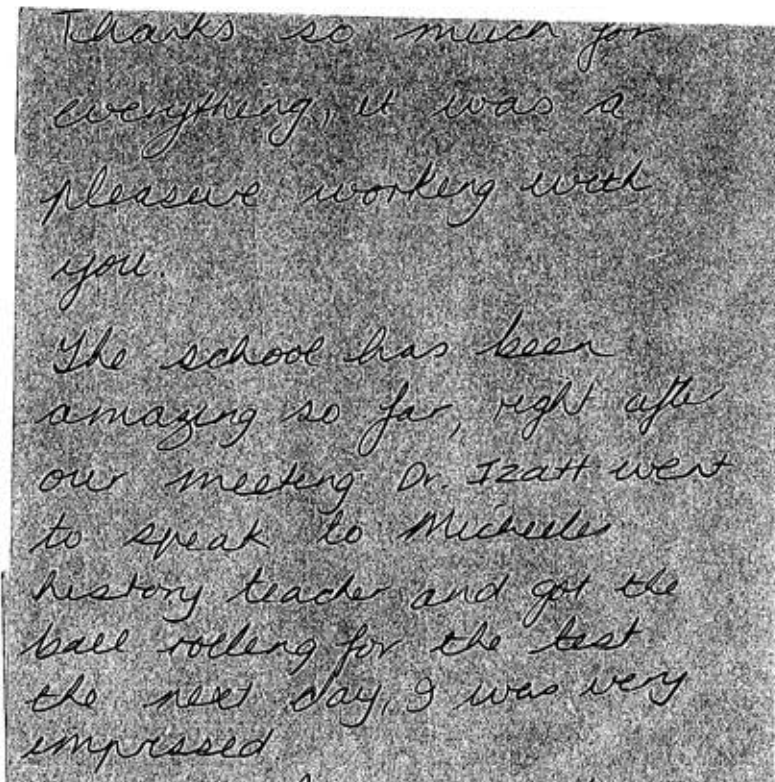 Thanks so much for
everything, it was a
pleasure working with
you.
The school has been
amazing so far, right after
our meeting Dr. Izatt went
to speak to Micheles
history teacher and got the
ball rolling for the test
the next day, I was very
impressed